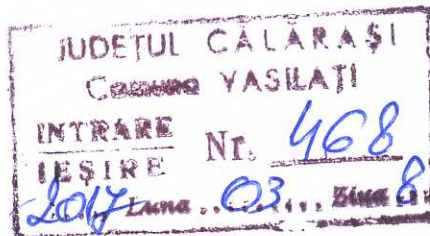 JUDEȚUL CĂLĂRAȘI
Comuna VASILAȚI
INTRARE
IEȘIRE Nr. 468
2017 Luna 03 Ziua 8